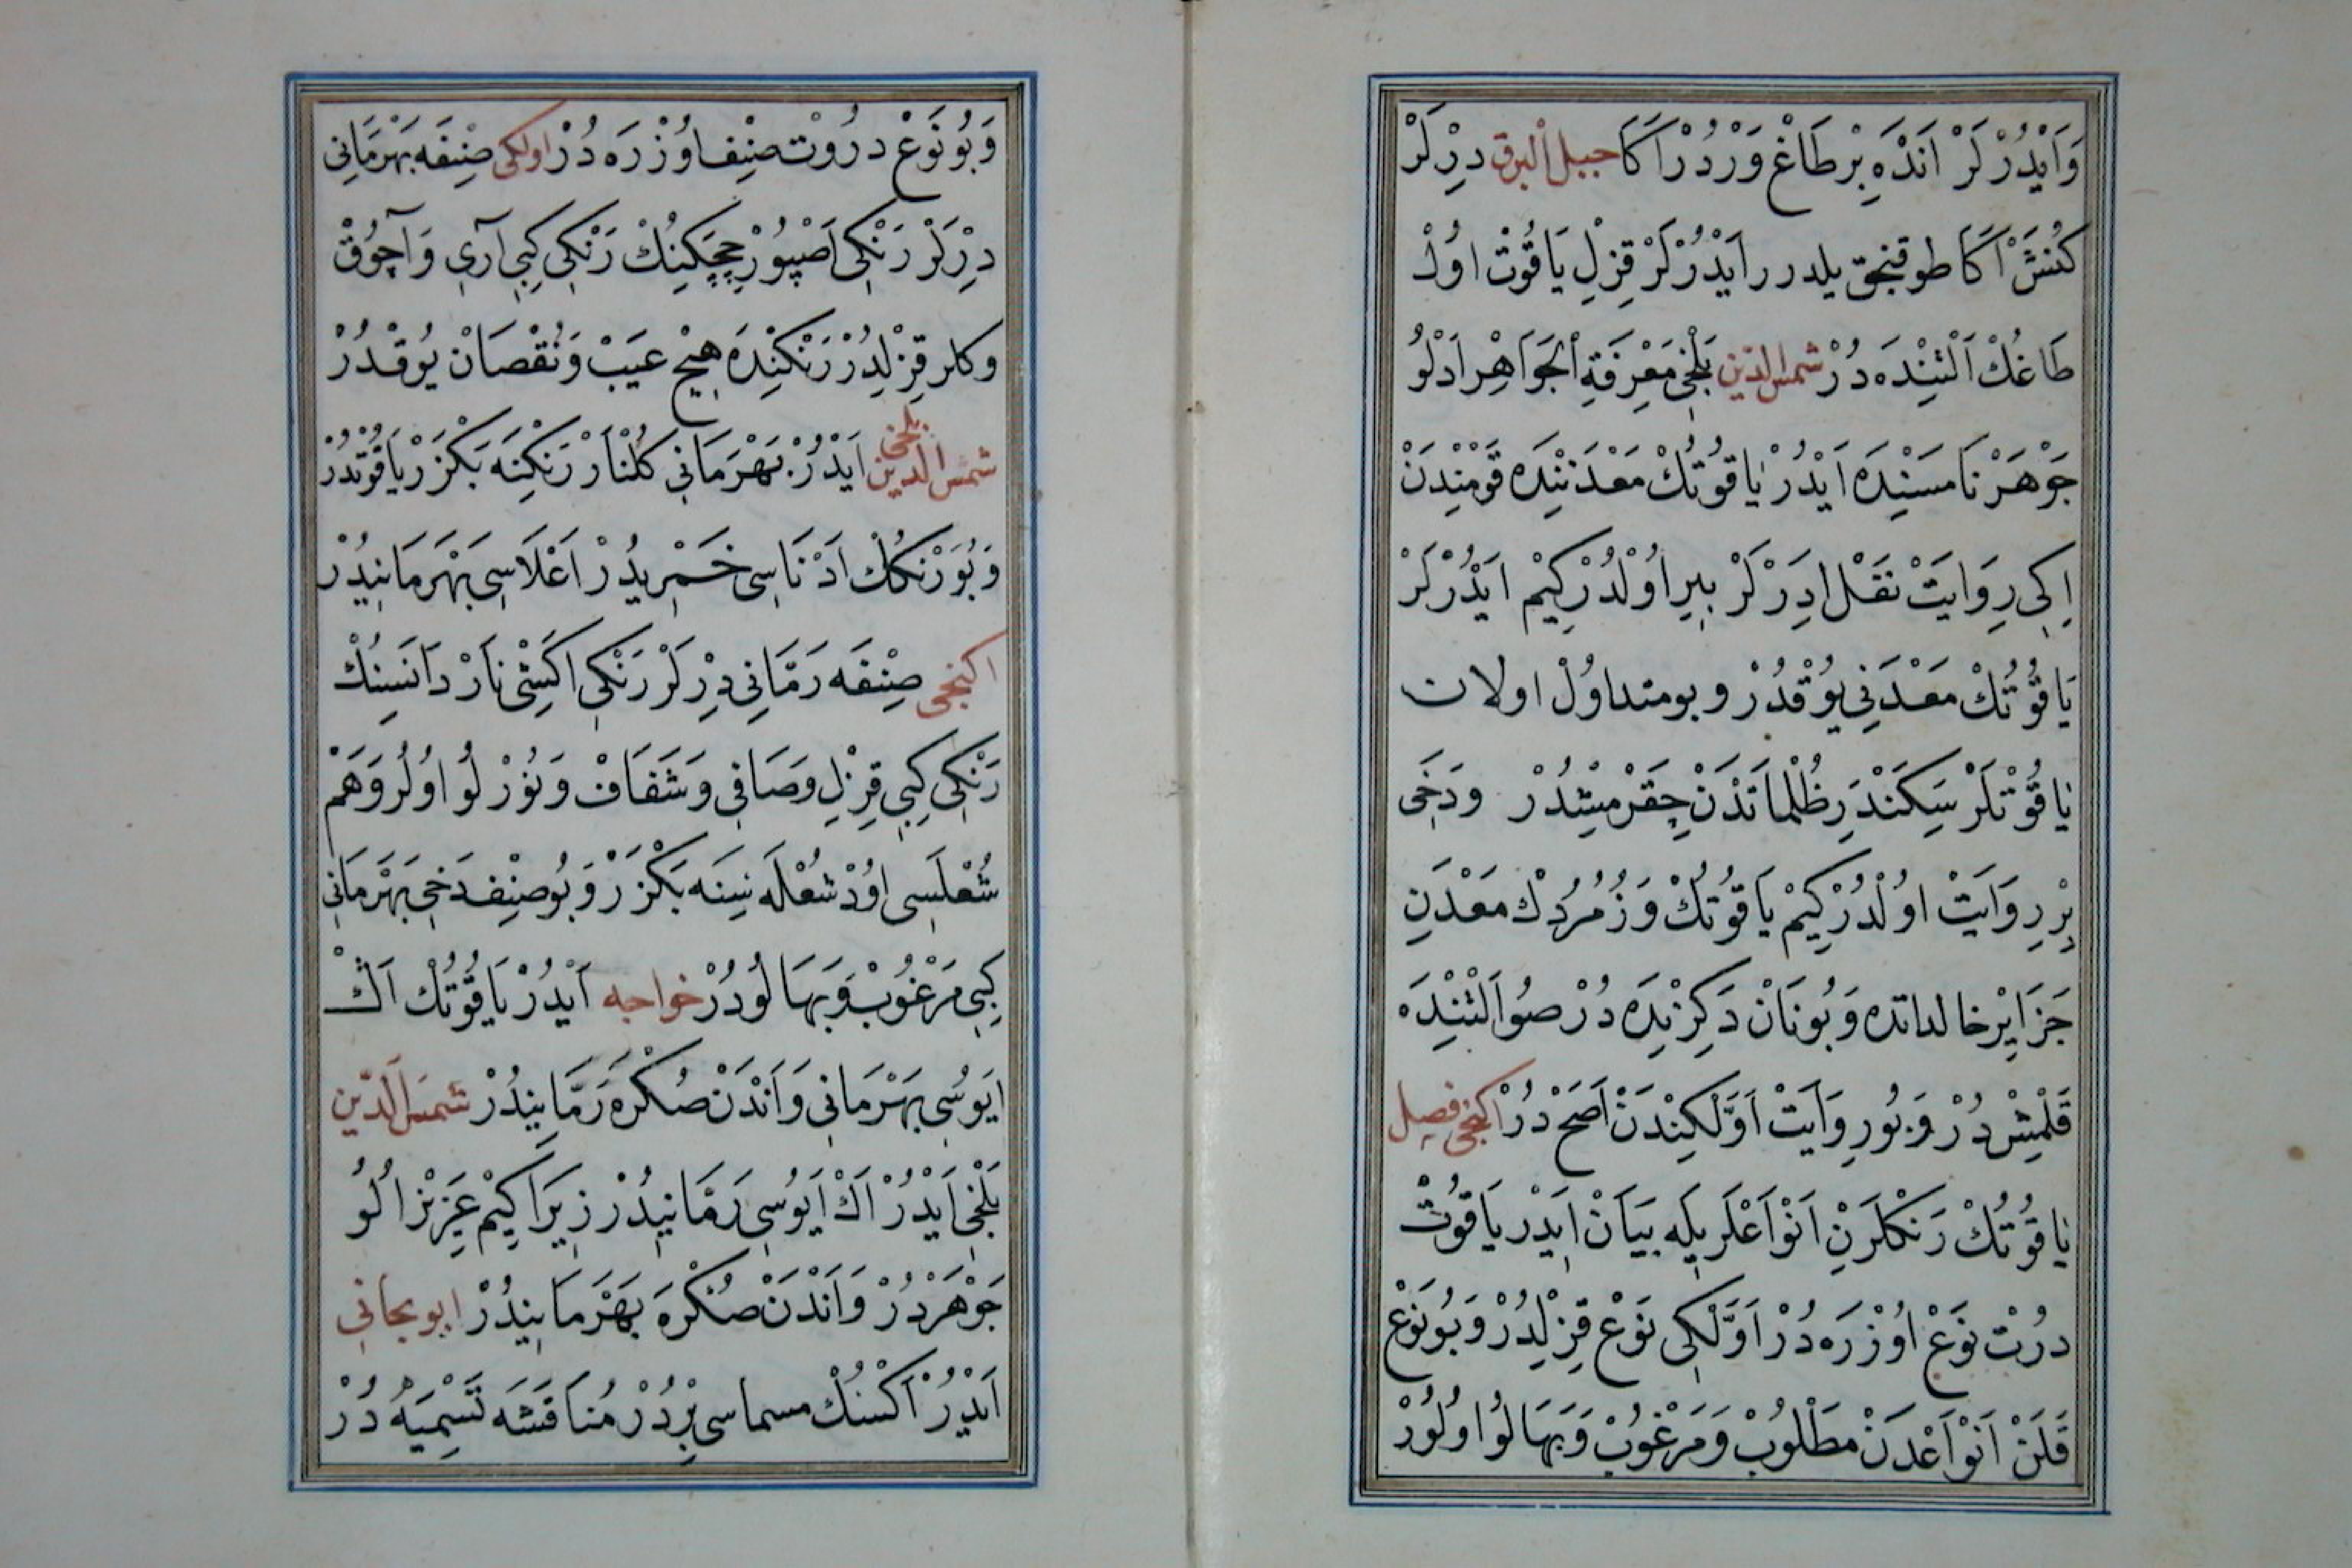 وَاَيْدُرْلَرْ اَنْدَه بِرْ طَاغْ وَرْدُرْ اَكَا جبل البرق دِرْلَرْ
كُنَشْ اَكَا طوقنجق يلدرر اَيْدُرْلَرْ قِزِلِ يَاقُوْتْ اوُلْ
طَاغُكْ اَلْتِنْدَه دُرْ شمس الدين بَلْخِي مَعْرِفَةِ الْجَوَاهِرْ اَدْلُو
جَوْهَرْنَامَسَنْدَه اَيْدُرْ يَاقُوتُكْ مَعْدَنِنْدَه قَوْمِنْدَنْ
اِكِى رِوَايَتْ نَقْل اِدَرْلَرْ بِيرِ اوُلْدُرْ كِيمْ اَيْدُرْلَرْ
يَاقُوتُكْ مَعْدَنِي يُوقْدُرْ وبو متداوُلْ اولان
يَاقُوتْلَرْ سِكَنْدَرِ ظُلْمَاتَدْنْ چِقَرْمِشْدُرْ وَدَخِى
بِرْ رِوَايَتْ اوُلْدُرْ كِيمْ يَاقُوتُكْ وَزُمُرُدْكْ مَعْدَنِ
جَزَايِرْ خالداتده وَبُونَانْ دَكِزِنْدَه دُرْ صُو اَلْتِنْدَه
قَلْمِشْ دُرْ وَبُو رِوَايَتْ اَوَّلْكِنْدَنْ اَصَحْ دُرْ اكنجى فصل
يَاقُوتُكْ رَنكْلَرِنْ اَنْوَاعْلَرِيلَه بَيَانْ اِيدَرْ يَاقُوتْ
دُرْتْ نَوْعْ اوُزْرَه دُرْ اَوَّلْكِى نَوْعْ قِزِلْدُرْ وَبُو نَوْعْ
قَلَنْ اَنْوَاعْدَنْ مَطْلُوبْ وَمَرْغُوبْ وَبَهَالُو اوُلُورْ
وَبُو نَوْعْ دُرْوتْ صِنِف اوُزْرَه دُرْ اولكى صِنِفَه بَهْرَمَانِي
دِرْلَرْ رَنْكِى اَصْپُورْ چِچَكِنِكْ رَنْكِى كِبِي آرِي وَآچُوقْ
وكلر قِزِلْدُرْ رَنْكِنْدَه هِيچْ عَيْبْ وَنُقْصَانْ يُوقْدُرْ
شمس الدين بلخى اَيْدُرْ بَهْرَمَانِي كُلْنَارْ رَنْكِنَه بَكْزَرْ يَاقُوتْدُرْ
وَبُو رَنْكُكْ اَدْنَاسِى خَمْرِيدُرْ اَعْلَاسِى بَهْرَمَانِيدُرْ
اكنجى صِنِفَه رَمَّانِي دِرْلَرْ رَنْكِى اكَشِى نَارْ دَانَسِنِكْ
رَنْكِى كِبِي قِزِلِ وَصَافِي وَشَفَافْ وَنُورْلُو اوُلُرْ وَهَمْ
شُعْلَسِى اوُدْ شُعْلَه سِنَه بَكْزَرْ وَبُو صِنِف دَخِي بَهْرَمَانِي
كِبِي مَرْغُوبْ وَبَهَالُودُرْ خواجه اَيْدُرْ يَاقُوتُكْ اَكْ
ايَوسِى بَهْرَمَانِي وَاَنْدَنْ صُكْرَه رَمَّانِيدُرْ شمس الدين
بَلْخِي اَيْدُرْ اَكْ اَيُوسِى رَمَّانِيدُرْ زِيرَا كِيمْ عَزِيزْ الُو
جَوْهَرْدُرْ وَاَنْدَنْ صُكْرَه بَهْرَمَانِيدُرْ ابو بجانى
اَيْدُرْ اكْسِنُكْ مسماسى بِرْدُرْ مُنَاقَشَه تَسْمِيَه دُرْ